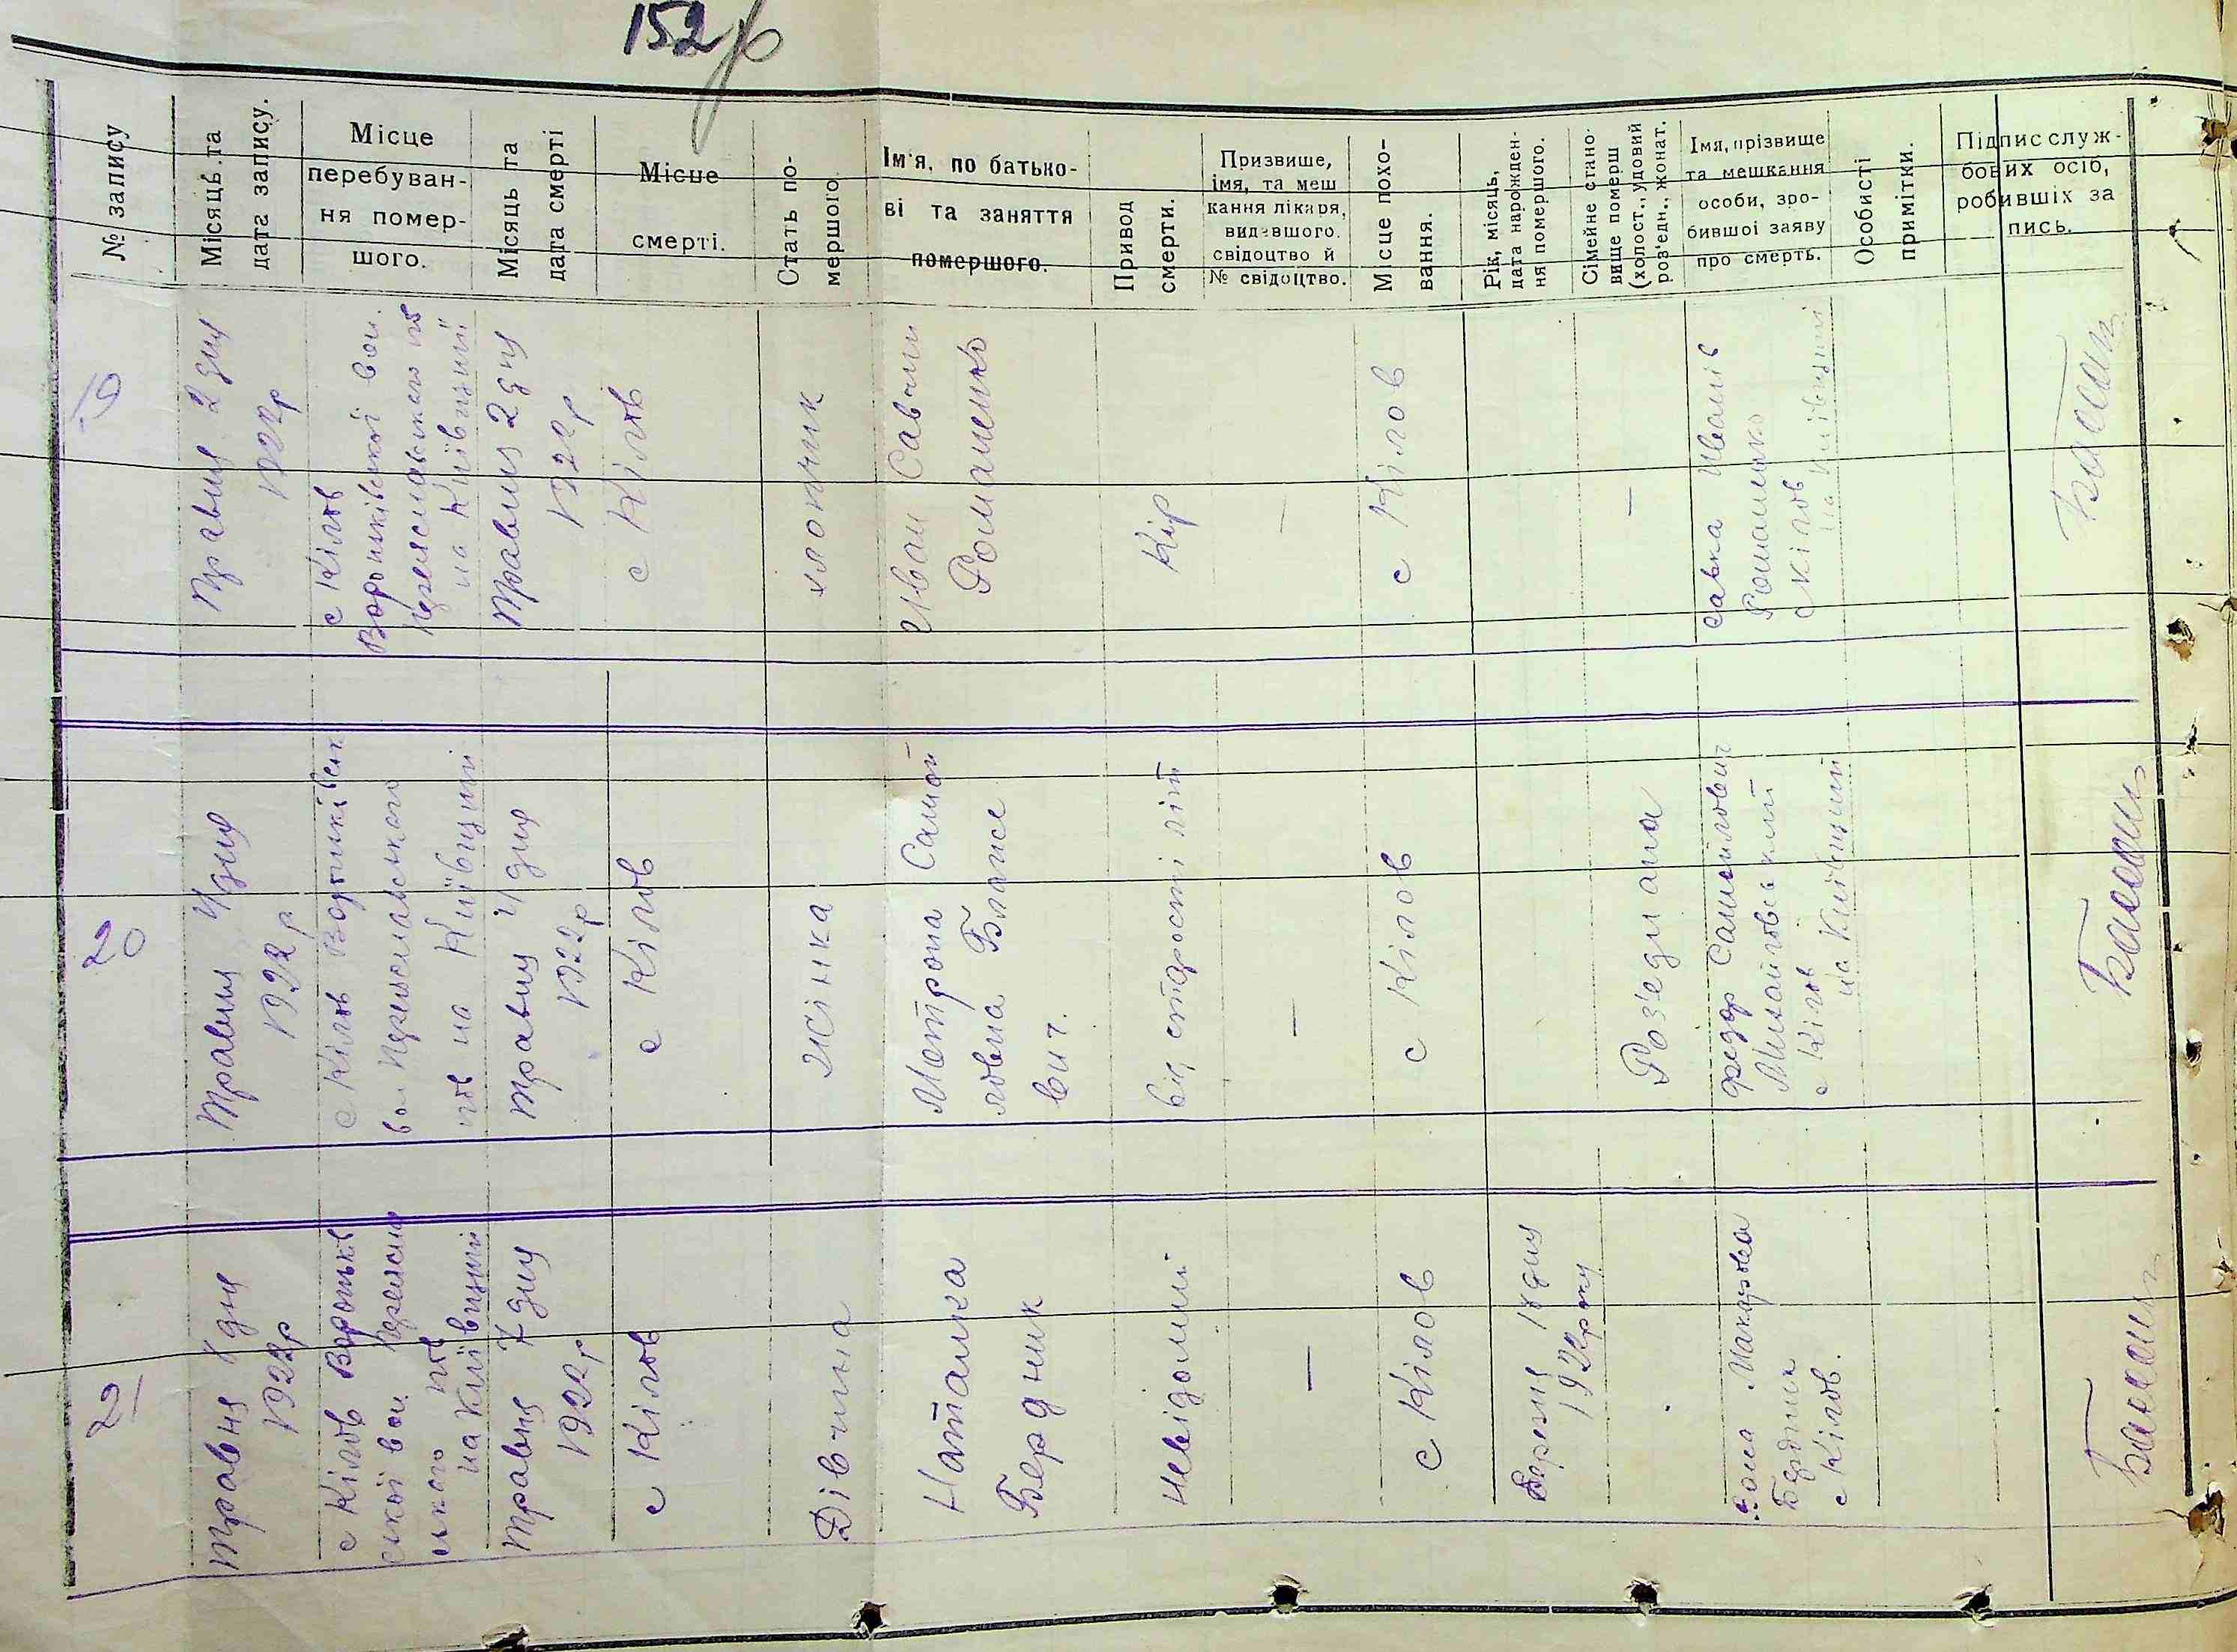 152
№ запису
Місяць та
дата запису.
Місце
перебуван-
ня помер-
шого.
Місяць та
дата смерті
Місце
смерті.
Стать по-
мершого.
Ім'я, по батько-
ві та заняття
помершого.
Привод
смерти.
Призвише,
імя, та меш
кання лікаря,
видавшого.
свідоцтво й
№ свідоцтво.
Місце похо-
вання.
Рік, місяць,
дата нарожден-
ня помершого.
Сімейне стано-
вище померш
(холост., удовий
роз'едн., жонат.
Імя, прізвище
та мешкання
особи, зро-
бившоі заяву
про смерть.
Особисті
примітки.
Підпис служ-
бових осіб,
робивших за
пись.
19
Травня 2 дня
1922р
с Кілов
Вороньківської вол.
Переяславського пов
на Київщині
Травня 2 дня
1922р
с Кілов
хлопчик
Иван Савчин
Романенко
Кір
—
с Кілов
—
Савка Иванів
Романенко
с Кілов
на Київщині
20
Травня 4 дня
1922р
с Кілов
вол Переяславського
пов на Київщині
Травня 4 дня
1922р
с Кілов
жінка
Мотрона Самой
ловна Блаже
вич.
від старости літ
—
с Кілов
Роз'еднана
Федор Самойлович
Михайловський
с Кілов
на Київщині
21
Травня
1922р
с Кілов
ської вол.
ського пов
на Київщині
Травня 7 дня
1922р
с Кілов
Дівчина
Наталка
Бердник
Невідомий
—
с Кілов
Березня 18 дня
1922 року
Макарова
Бердник
с Кілов.